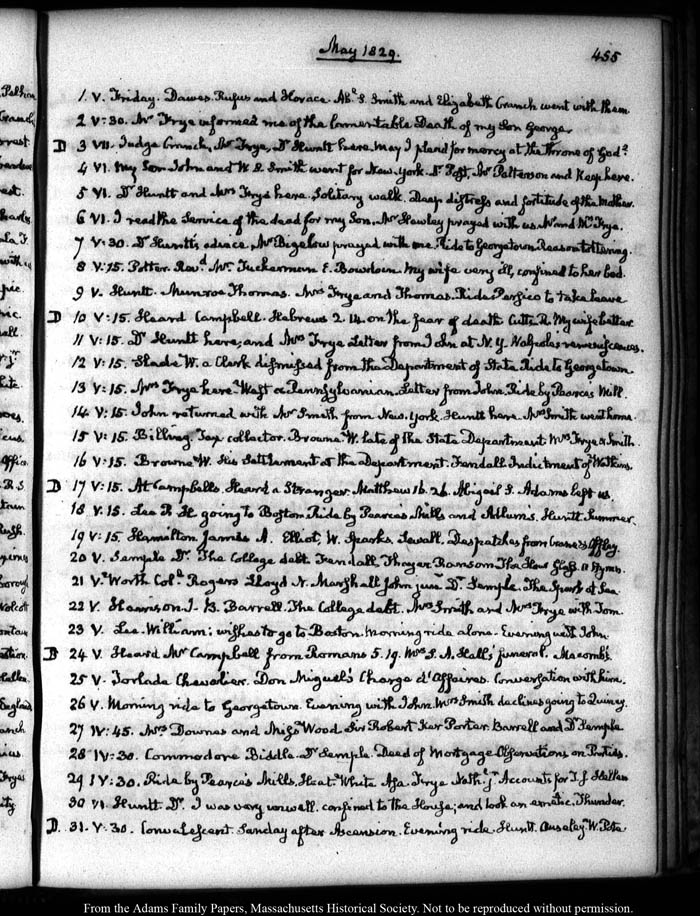 May 1829.
455
1 V. Friday. Dawes Rufus and Horace. Abl. S. Smith and Elizabeth Cranch went with them
2 V:30. Mr Frye informed me of the lamentable Death of my Son George.
D 3 VII. Judge Cranch, Mr Frye, Dr Huntt here. May I plead for mercy at the throne of God?
4 VI. My Son John and W. S. Smith went for New-York. Dr Post, Mr Patterson and Keep here.
5 VI. Dr Huntt and Mrs Frye here. Solitary walk. Deep distress and fortitude of the Mother.
6 VI. I read the Service of the dead for my Son. Mr Hawley prayed with us. Mr and Mrs Frye.
7 V:30. Dr Huntt's advice. Mr Bigelow prayed with me. Ride to Georgetown. Reason tottering.
8 V:15. Potter Revd. Mr. Tuckerman E. Bowdoin. My wife very ill, confined to her bed.
9 V. Huntt. Munroe Thomas. Mrs Frye and Thomas. Ride Persico to take leave
D 10 V:15. Heard Campbell. Hebrews 2.14. on the fear of death. Cutts R. My wife better
11 V:15. Dr Huntt here; and Mrs Frye. Letter from John at N.Y. Walpole's reminiscences.
12 V:15. Slade W. a Clerk dismissed from the Department of State. Ride to Georgetown
13 V:15. Mrs Frye here. West a Pennsylvanian. Letter from John. Ride by Pearce's Mill.
14 V:15 John returned with Mr Smith from New-York. Huntt here. Mrs Smith went home.
15 V:15. Billing, Tax collector. Browne W. late of the State Department Mrs Frye & Smith.
16 V:15. Browne W. His Settlement at the Department. Fendall Indictment of Watkins.
D 17 V:15. At Campbell's. Heard a Stranger. Matthew 16.26. Abigail S. Adams left us.
18 V.15. Lee R. H. going to Boston. Ride by Pearce's Mills and Adlum's. Huntt. Summer.
19 V:15. Hamilton James A. Elliot, W. Sparks, Lewall. Despatches from Crane's Affray.
20 V. Semple Dr. The College debt. Fendall Thayer Ransom Glass. Hymns.
21 V. Worth Coll. Rogers Lloyd N. Marshall John junr. Dr. Semple. The Spark at Sea
22 V. Harrison J. B. Barrell. The College debt. Mrs Smith and Mrs Frye with Tom.
23 V. Lee. William; wishes to go to Boston. Morning ride alone. Evening with John.
D 24 V. Heard Mr Campbell from Romans 5.19. Mrs S. A. Hall's funeral. Macomb's
25 V. Torlade Chevalier. Don Miguel's Chargé d'Affaires. Conversation with him.
26 V. Morning ride to Georgetown. Evening with John. Mrs Smith declines going to Quincy.
27 IV:45. Mrs Downes and Miss Wood. Sir Robert Ker Porter Barrell and Dr Semple
28 IV:30. Commodore Biddle. Dr Semple. Deed of Mortgage. Observations on Parties.
29 IV:30. Ride by Pearce's Mills. Heat. White Asa Frye Nathl. jr. Accounts for T. J. Hellen
30 VI. Huntt Dr. I was very unwell. confined to the House; and took an emetic. Thunder.
D. 31. V:30. Convalescent. Sunday after Ascension. Evening ride. Huntt. Ouseley W.
From the Adams Family Papers, Massachusetts Historical Society. Not to be reproduced without permission.